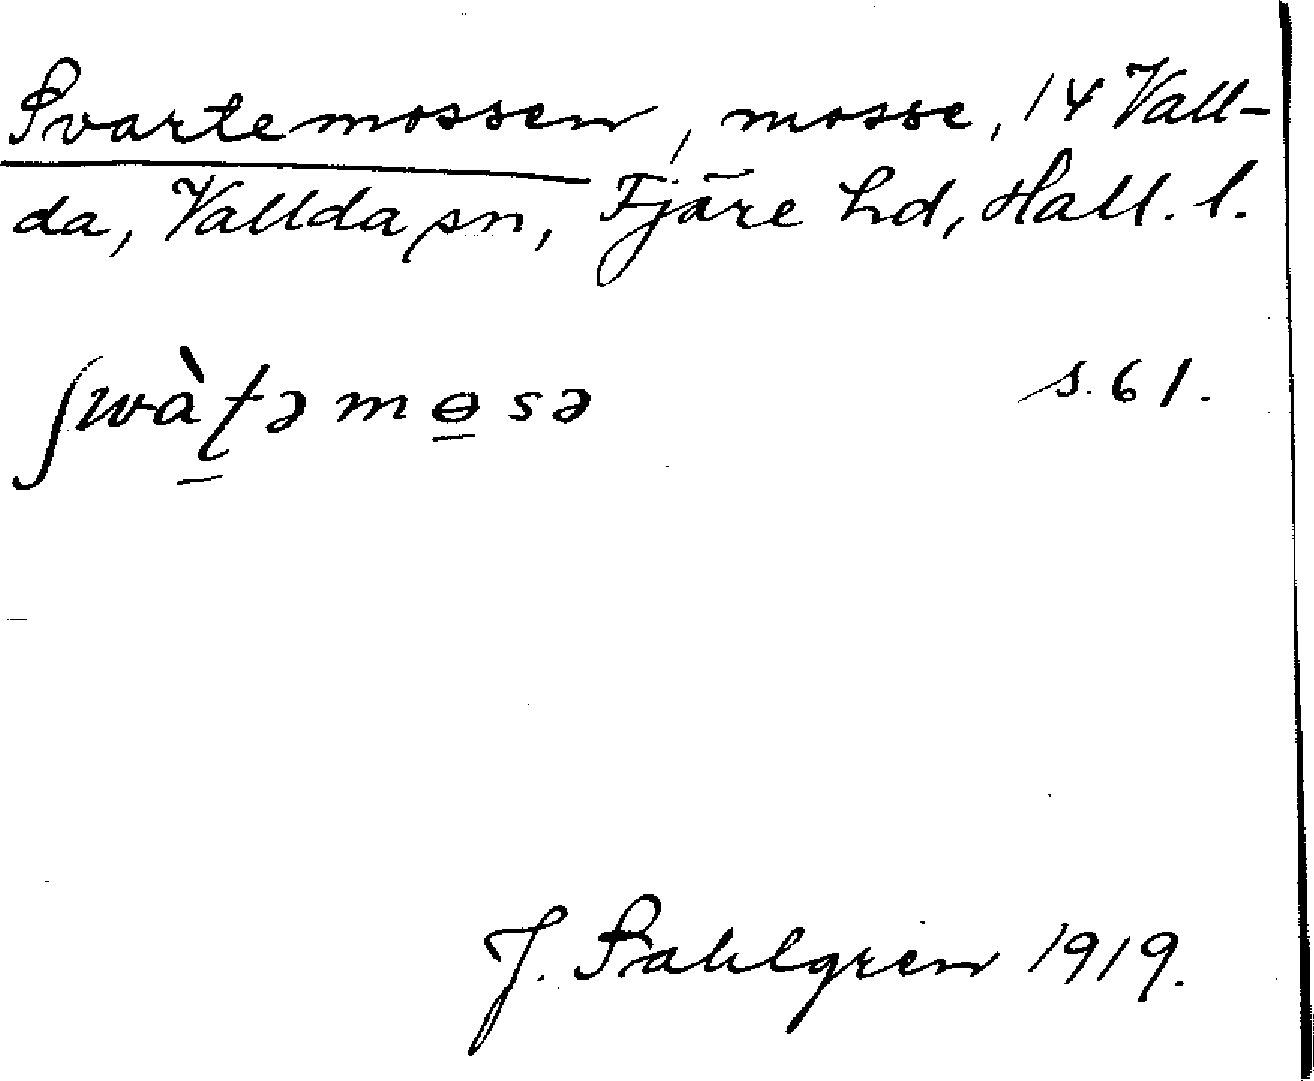 Svartemossen, mosse, 14 Vall-
da, Vallda sn, Fjäre hd, Hall. l.
ʃwàʈəmɵsə s. 61.
J. Sahlgren 1919.